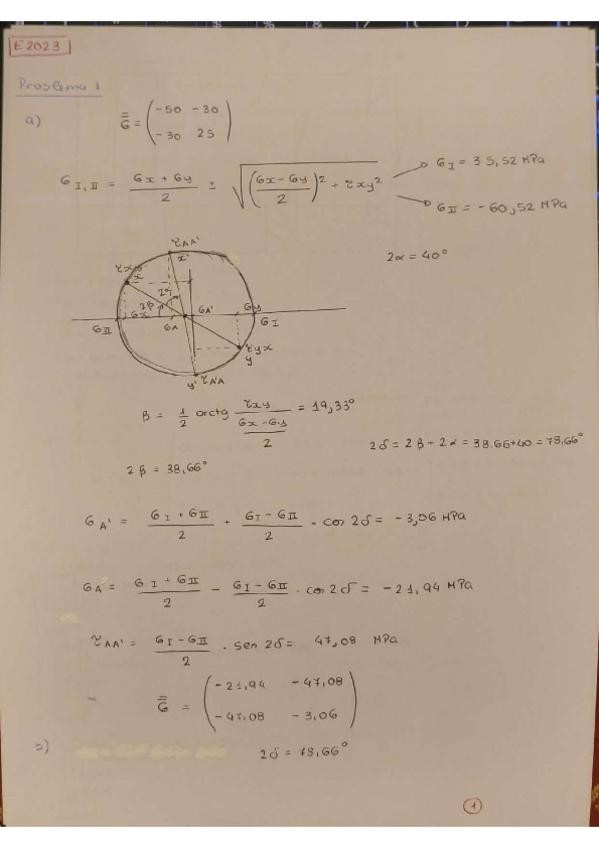 E2023
Problema 1
a) G̿ = ( -50 -30
-30 25 )
G I, II = (Gx + Gy)/2 ± √( ((Gx - Gy)/2)² + τxy² )
G I = 35,52 MPa
G II = -60,52 MPa
2α = 40°
τAA'
x'
τxy
x
2α
2β
Gx GA GA' Gy
G II G I
τyx
y
y' τA'A
β = 1/2 arctg τxy / ((Gx - Gy)/2) = 19,33°
2δ = 2β + 2α = 38.66+40 = 78,66°
2β = 38,66°
G A' = (G I + G II)/2 + (G I - G II)/2 · cos 2δ = -3,06 MPa
G A = (G I + G II)/2 - (G I - G II)/2 · cos 2δ = -21,94 MPa
τAA' = (G I - G II)/2 · sen 2δ = 47,08 MPa
G̿ = ( -21,94 -47,08
-47,08 -3,06 )
b) 2δ = 78,66°
1